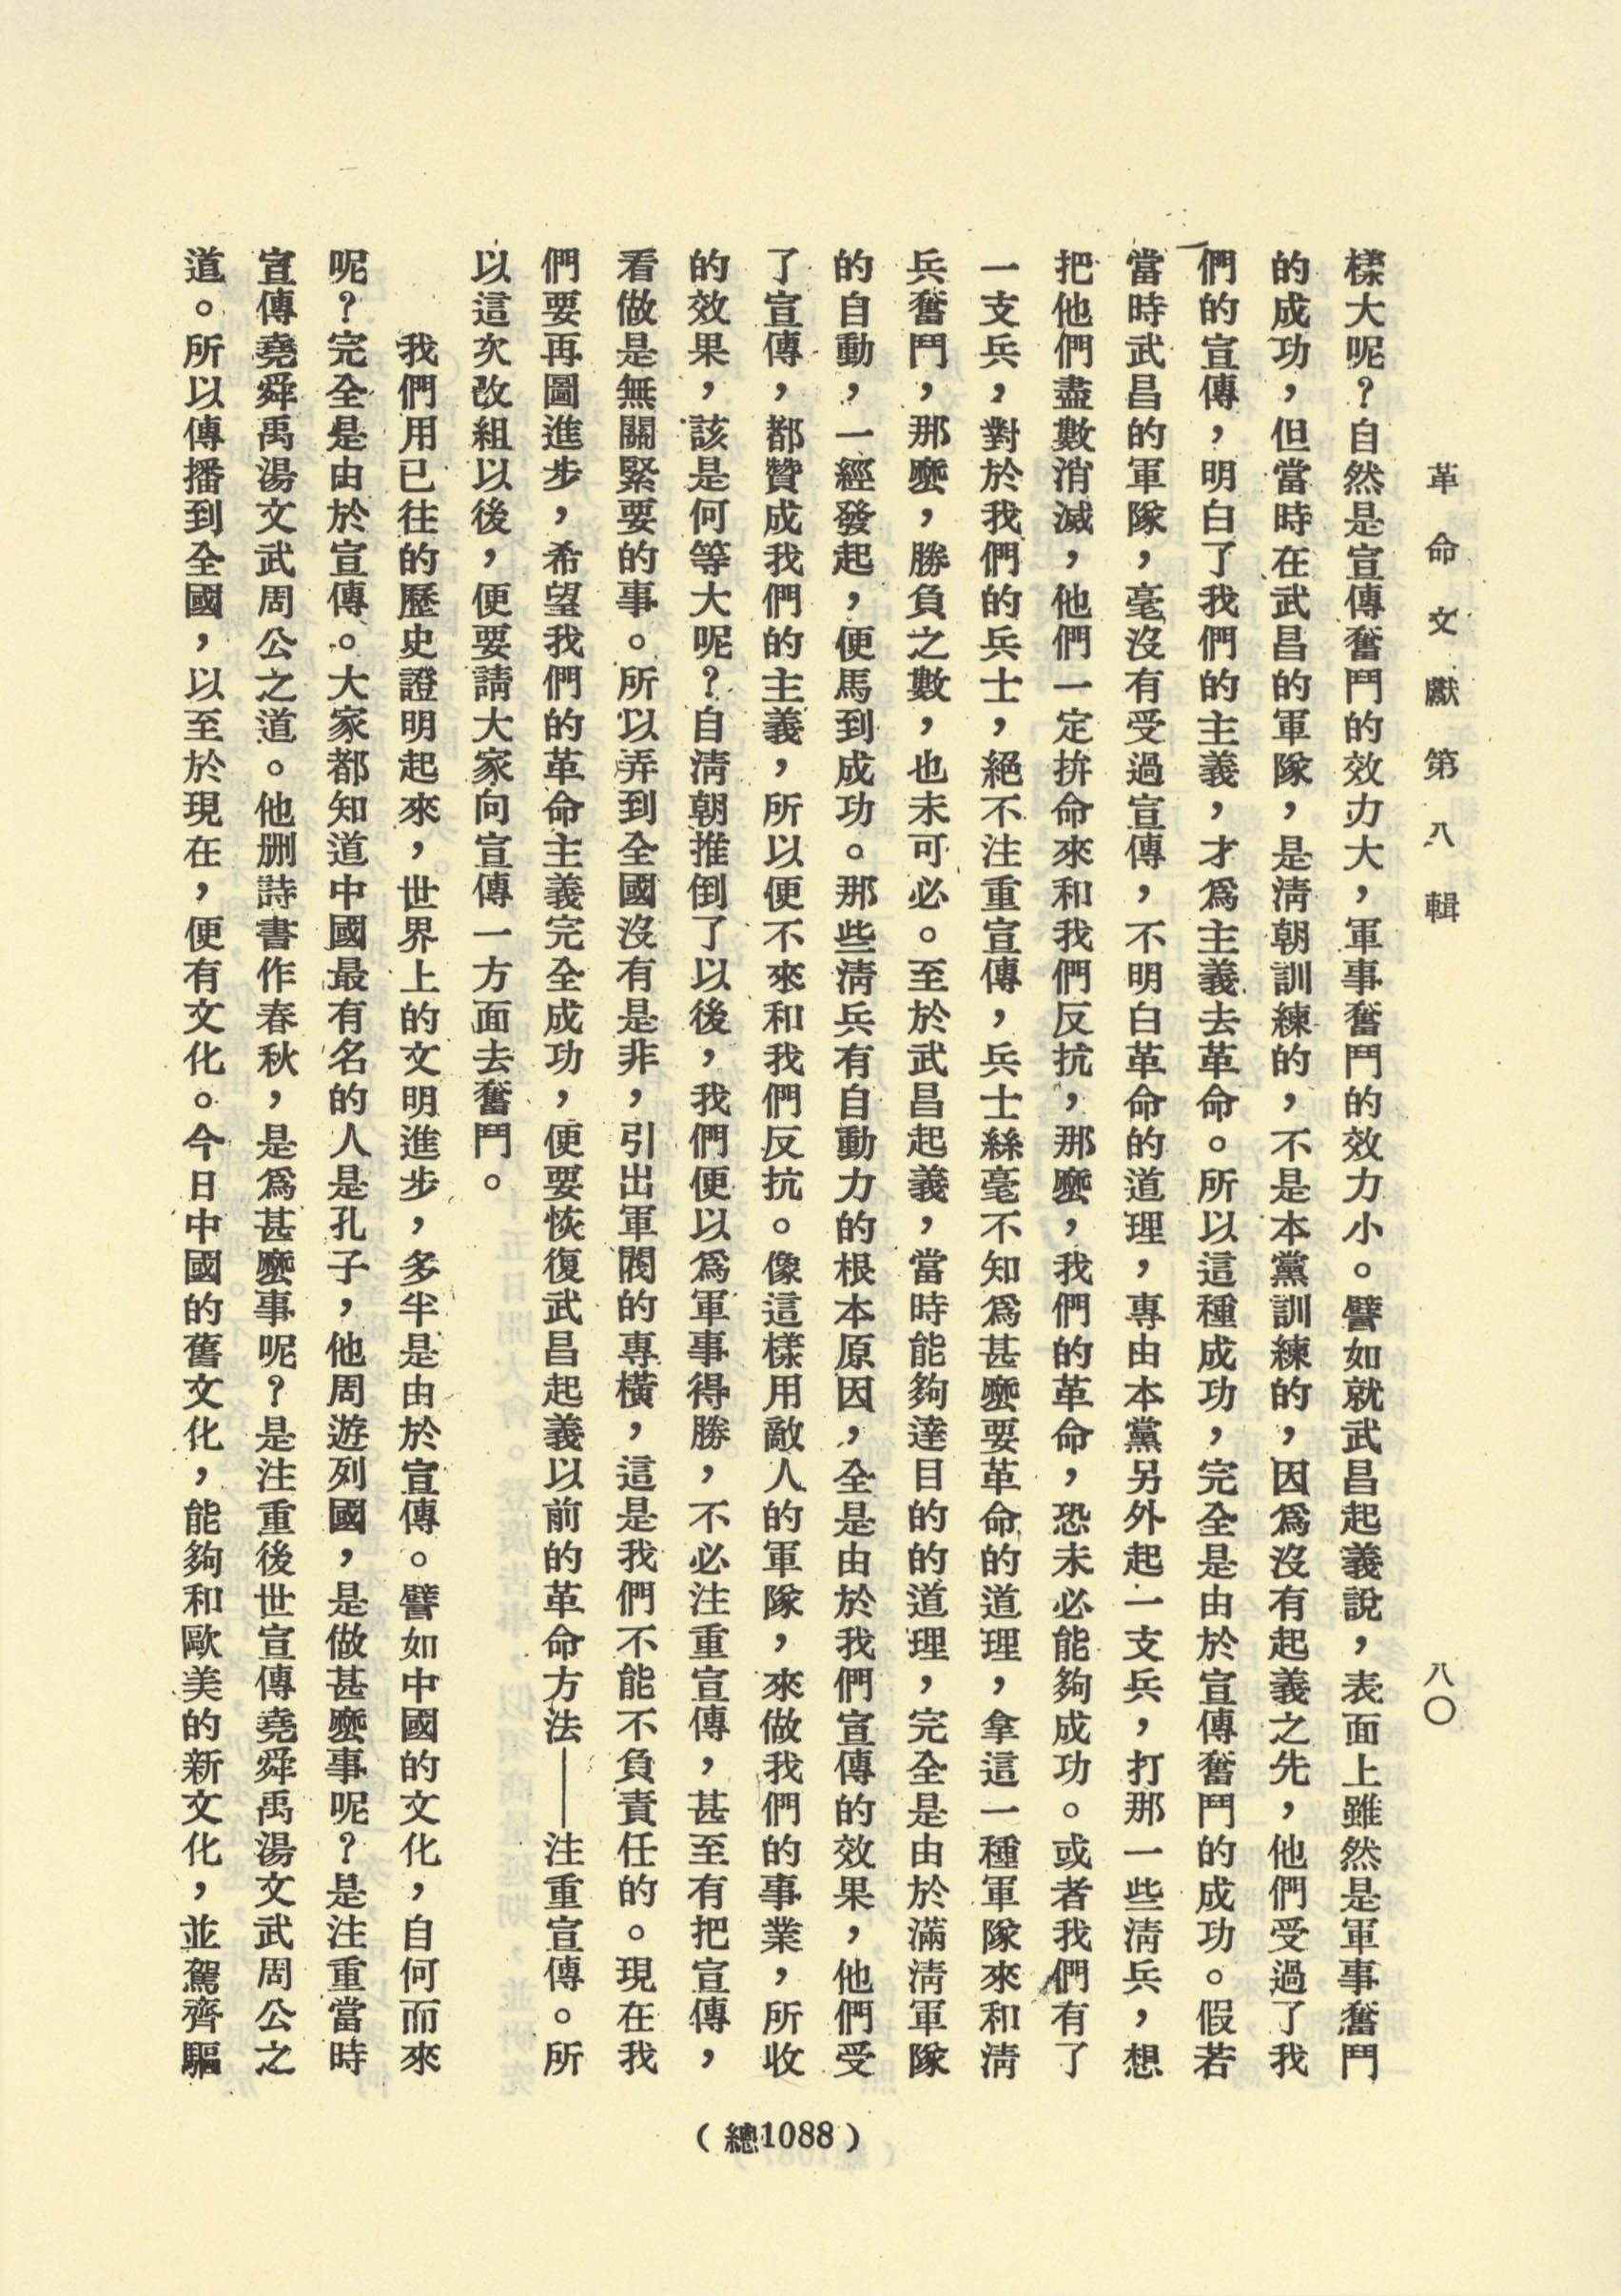 革命文獻第八輯
八〇
樣大呢？自然是宣傳奮鬥的效力大，軍事奮鬥的效力小。譬如就武昌起義說，表面上雖然是軍事奮鬥
的成功，但當時在武昌的軍隊，是淸朝訓練的，不是本黨訓練的，因爲沒有起義之先，他們受過了我
們的宣傳，明白了我們的主義，才爲主義去革命。所以這種成功，完全是由於宣傳奮鬥的成功。假若
當時武昌的軍隊，毫沒有受過宣傳，不明白革命的道理，專由本黨另外起一支兵，打那一些淸兵，想
把他們盡數消滅，他們一定拚命來和我們反抗，那麼，我們的革命，恐未必能夠成功。或者我們有了
一支兵，對於我們的兵士，絕不注重宣傳，兵士絲毫不知爲甚麼要革命的道理，拿這一種軍隊來和淸
兵奮鬥，那麼，勝負之數，也未可必。至於武昌起義，當時能夠達目的的道理，完全是由於滿淸軍隊
的自動，一經發起，便馬到成功。那些淸兵有自動力的根本原因，全是由於我們宣傳的效果，他們受
了宣傳，都贊成我們的主義，所以便不來和我們反抗。像這樣用敵人的軍隊，來做我們的事業，所收
的效果，該是何等大呢？自淸朝推倒了以後，我們便以爲軍事得勝，不必注重宣傳，甚至有把宣傳，
看做是無關緊要的事。所以弄到全國沒有是非，引出軍閥的專橫，這是我們不能不負責任的。現在我
們要再圖進步，希望我們的革命主義完全成功，便要恢復武昌起義以前的革命方法——注重宣傳。所
以這次改組以後，便要請大家向宣傳一方面去奮鬥。
我們用已往的歷史證明起來，世界上的文明進步，多半是由於宣傳。譬如中國的文化，自何而來
呢？完全是由於宣傳。大家都知道中國最有名的人是孔子，他周遊列國，是做甚麼事呢？是注重當時
宣傳堯舜禹湯文武周公之道。他删詩書作春秋，是爲甚麼事呢？是注重後世宣傳堯舜禹湯文武周公之
道。所以傳播到全國，以至於現在，便有文化。今日中國的舊文化，能夠和歐美的新文化，並駕齊驅
（總1088）